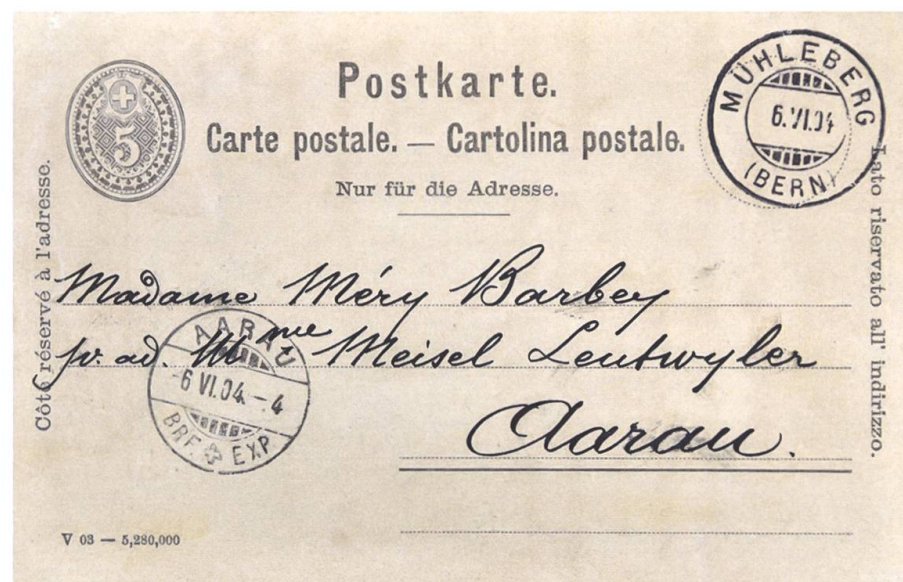 Postkarte.
Carte postale. — Cartolina postale.
Nur für die Adresse.
5
MÜHLEBERG
6.VI.04
(BERN)
Côté réservé à l'adresse.
Lato riservato all' indirizzo.
Madame Méry Barbey
pr. ad. Mme Meisel Leutwyler
Aarau.
AARAU
-6 VI.04.-.4
BRF. EXP.
V 03 — 5,280,000